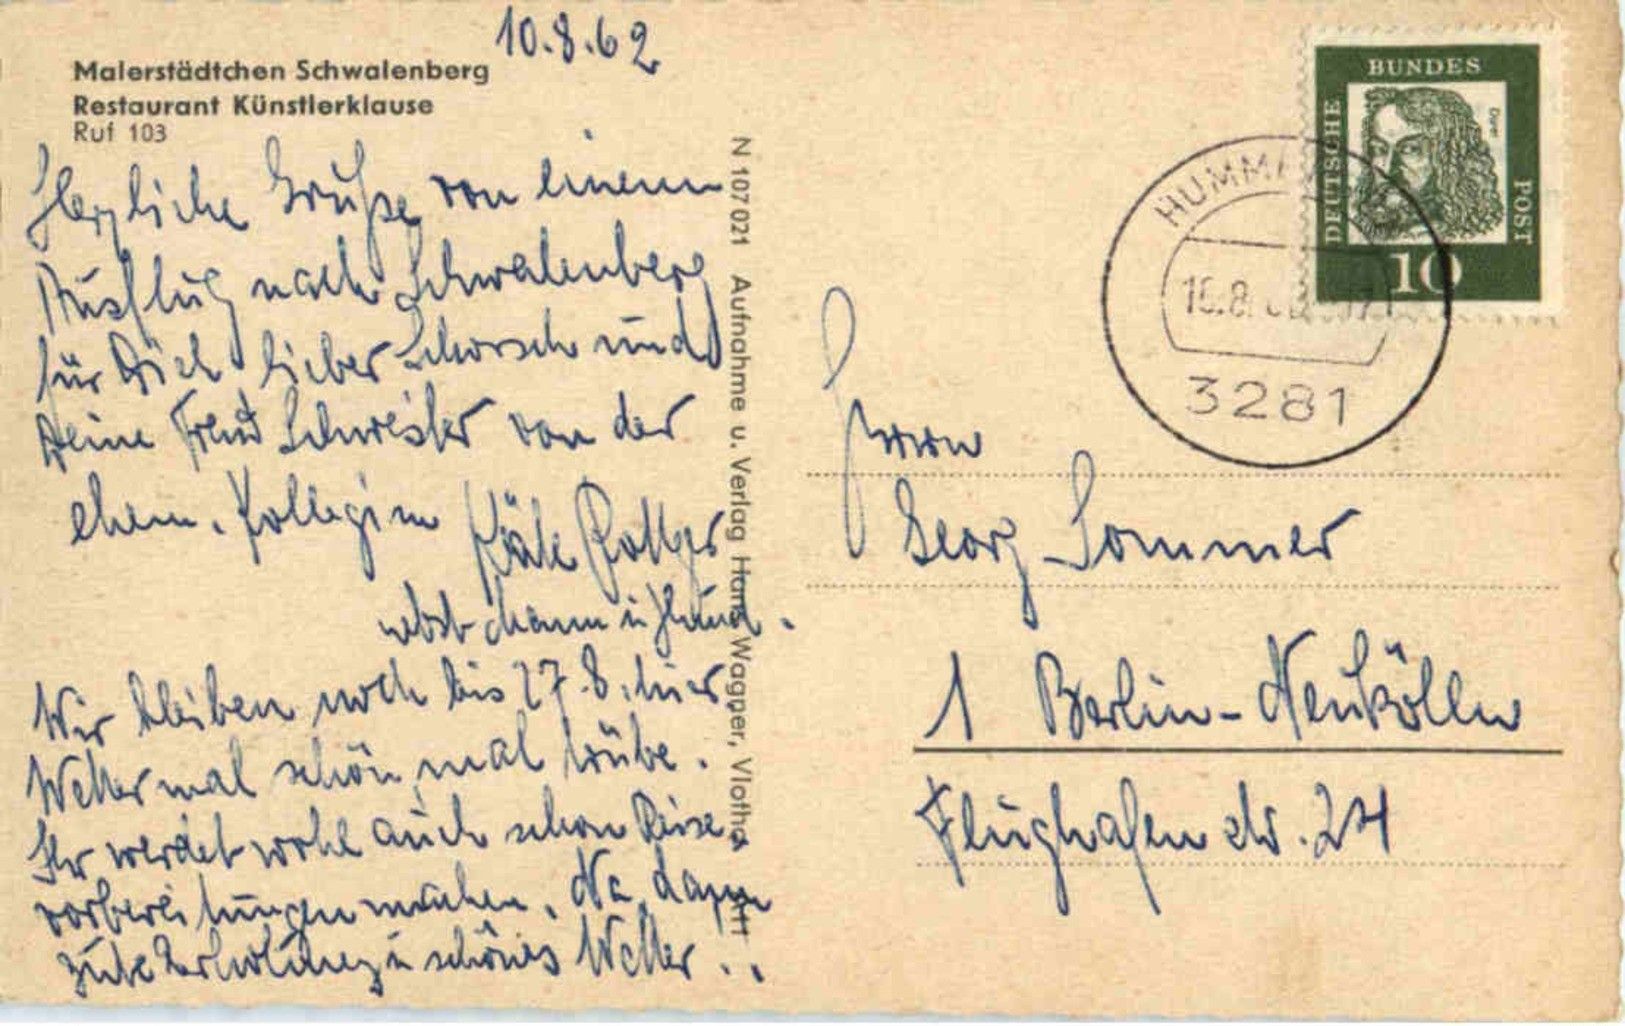 10.8.62
Malerstädtchen Schwalenberg
Restaurant Künstlerklause
Ruf 103
Herzliche Grüße von einem
Ausflug nach Schwalenberg
für Dich lieber Schorsch und
Deine Schwester von der
ehem. Kollegin Käte
nebst Mann u. Hund.
Wir bleiben noch bis 27.8. hier
Wetter mal schön, mal trübe.
Ihr werdet wohl auch schon Reise
vorbereitungen machen. Na dann
gute Erholung u schönes Wetter..
N 107 021 Aufnahme u. Verlag Hans Wagner, Vlotho
DEUTSCHE BUNDES POST
Dürer
10
3281
Herrn
Georg Sommer
1 Berlin-Neukölln
Flughafenstr. 24